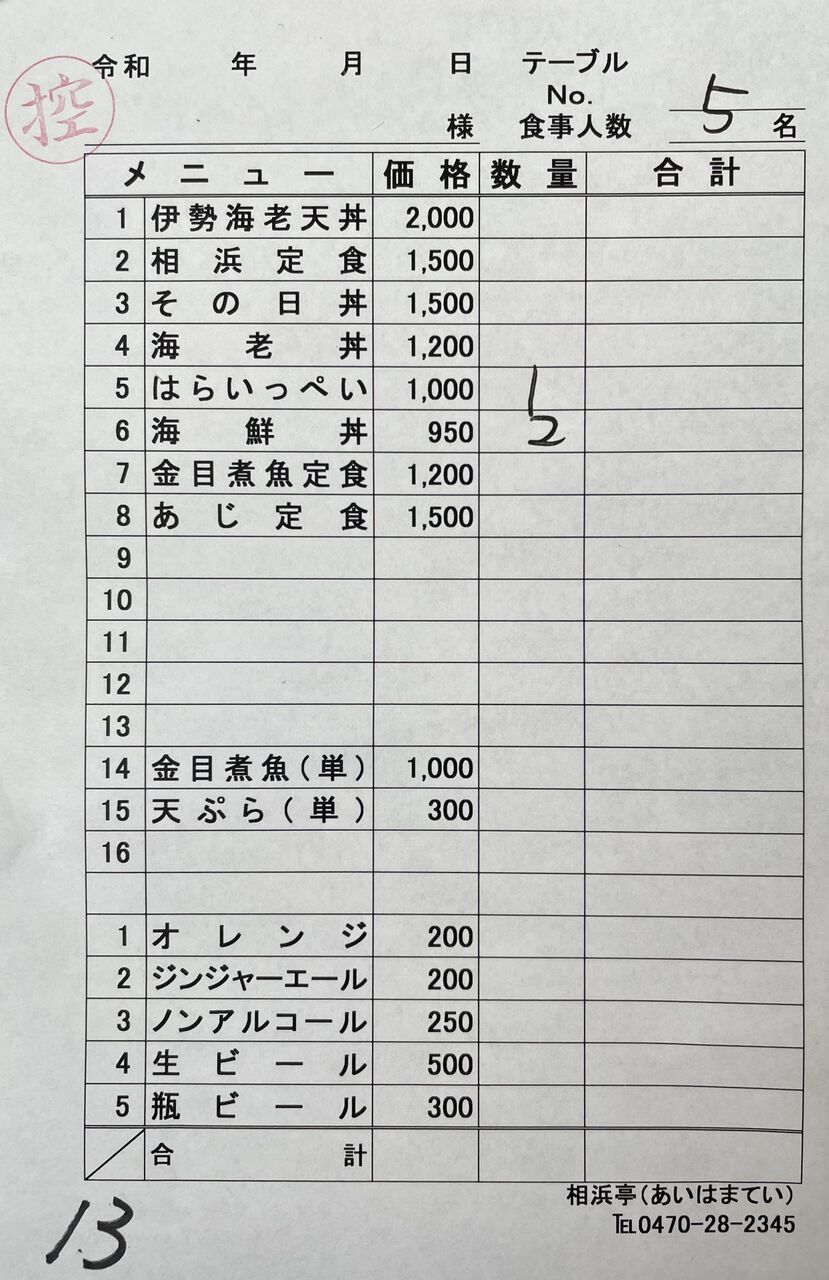 控
令和 年 月 日 テーブル
No. 5
様 食事人数 名
メニュー 価格 数量 合計
1 伊勢海老天丼 2,000
2 相浜定食 1,500
3 その日丼 1,500
4 海老丼 1,200
5 はらいっぺい 1,000 1
6 海鮮丼 950 2
7 金目煮魚定食 1,200
8 あじ定食 1,500
9
10
11
12
13
14 金目煮魚(単) 1,000
15 天ぷら(単) 300
16
1 オレンジ 200
2 ジンジャーエール 200
3 ノンアルコール 250
4 生ビール 500
5 瓶ビール 300
合計
相浜亭(あいはまてい)
℡0470-28-2345
13